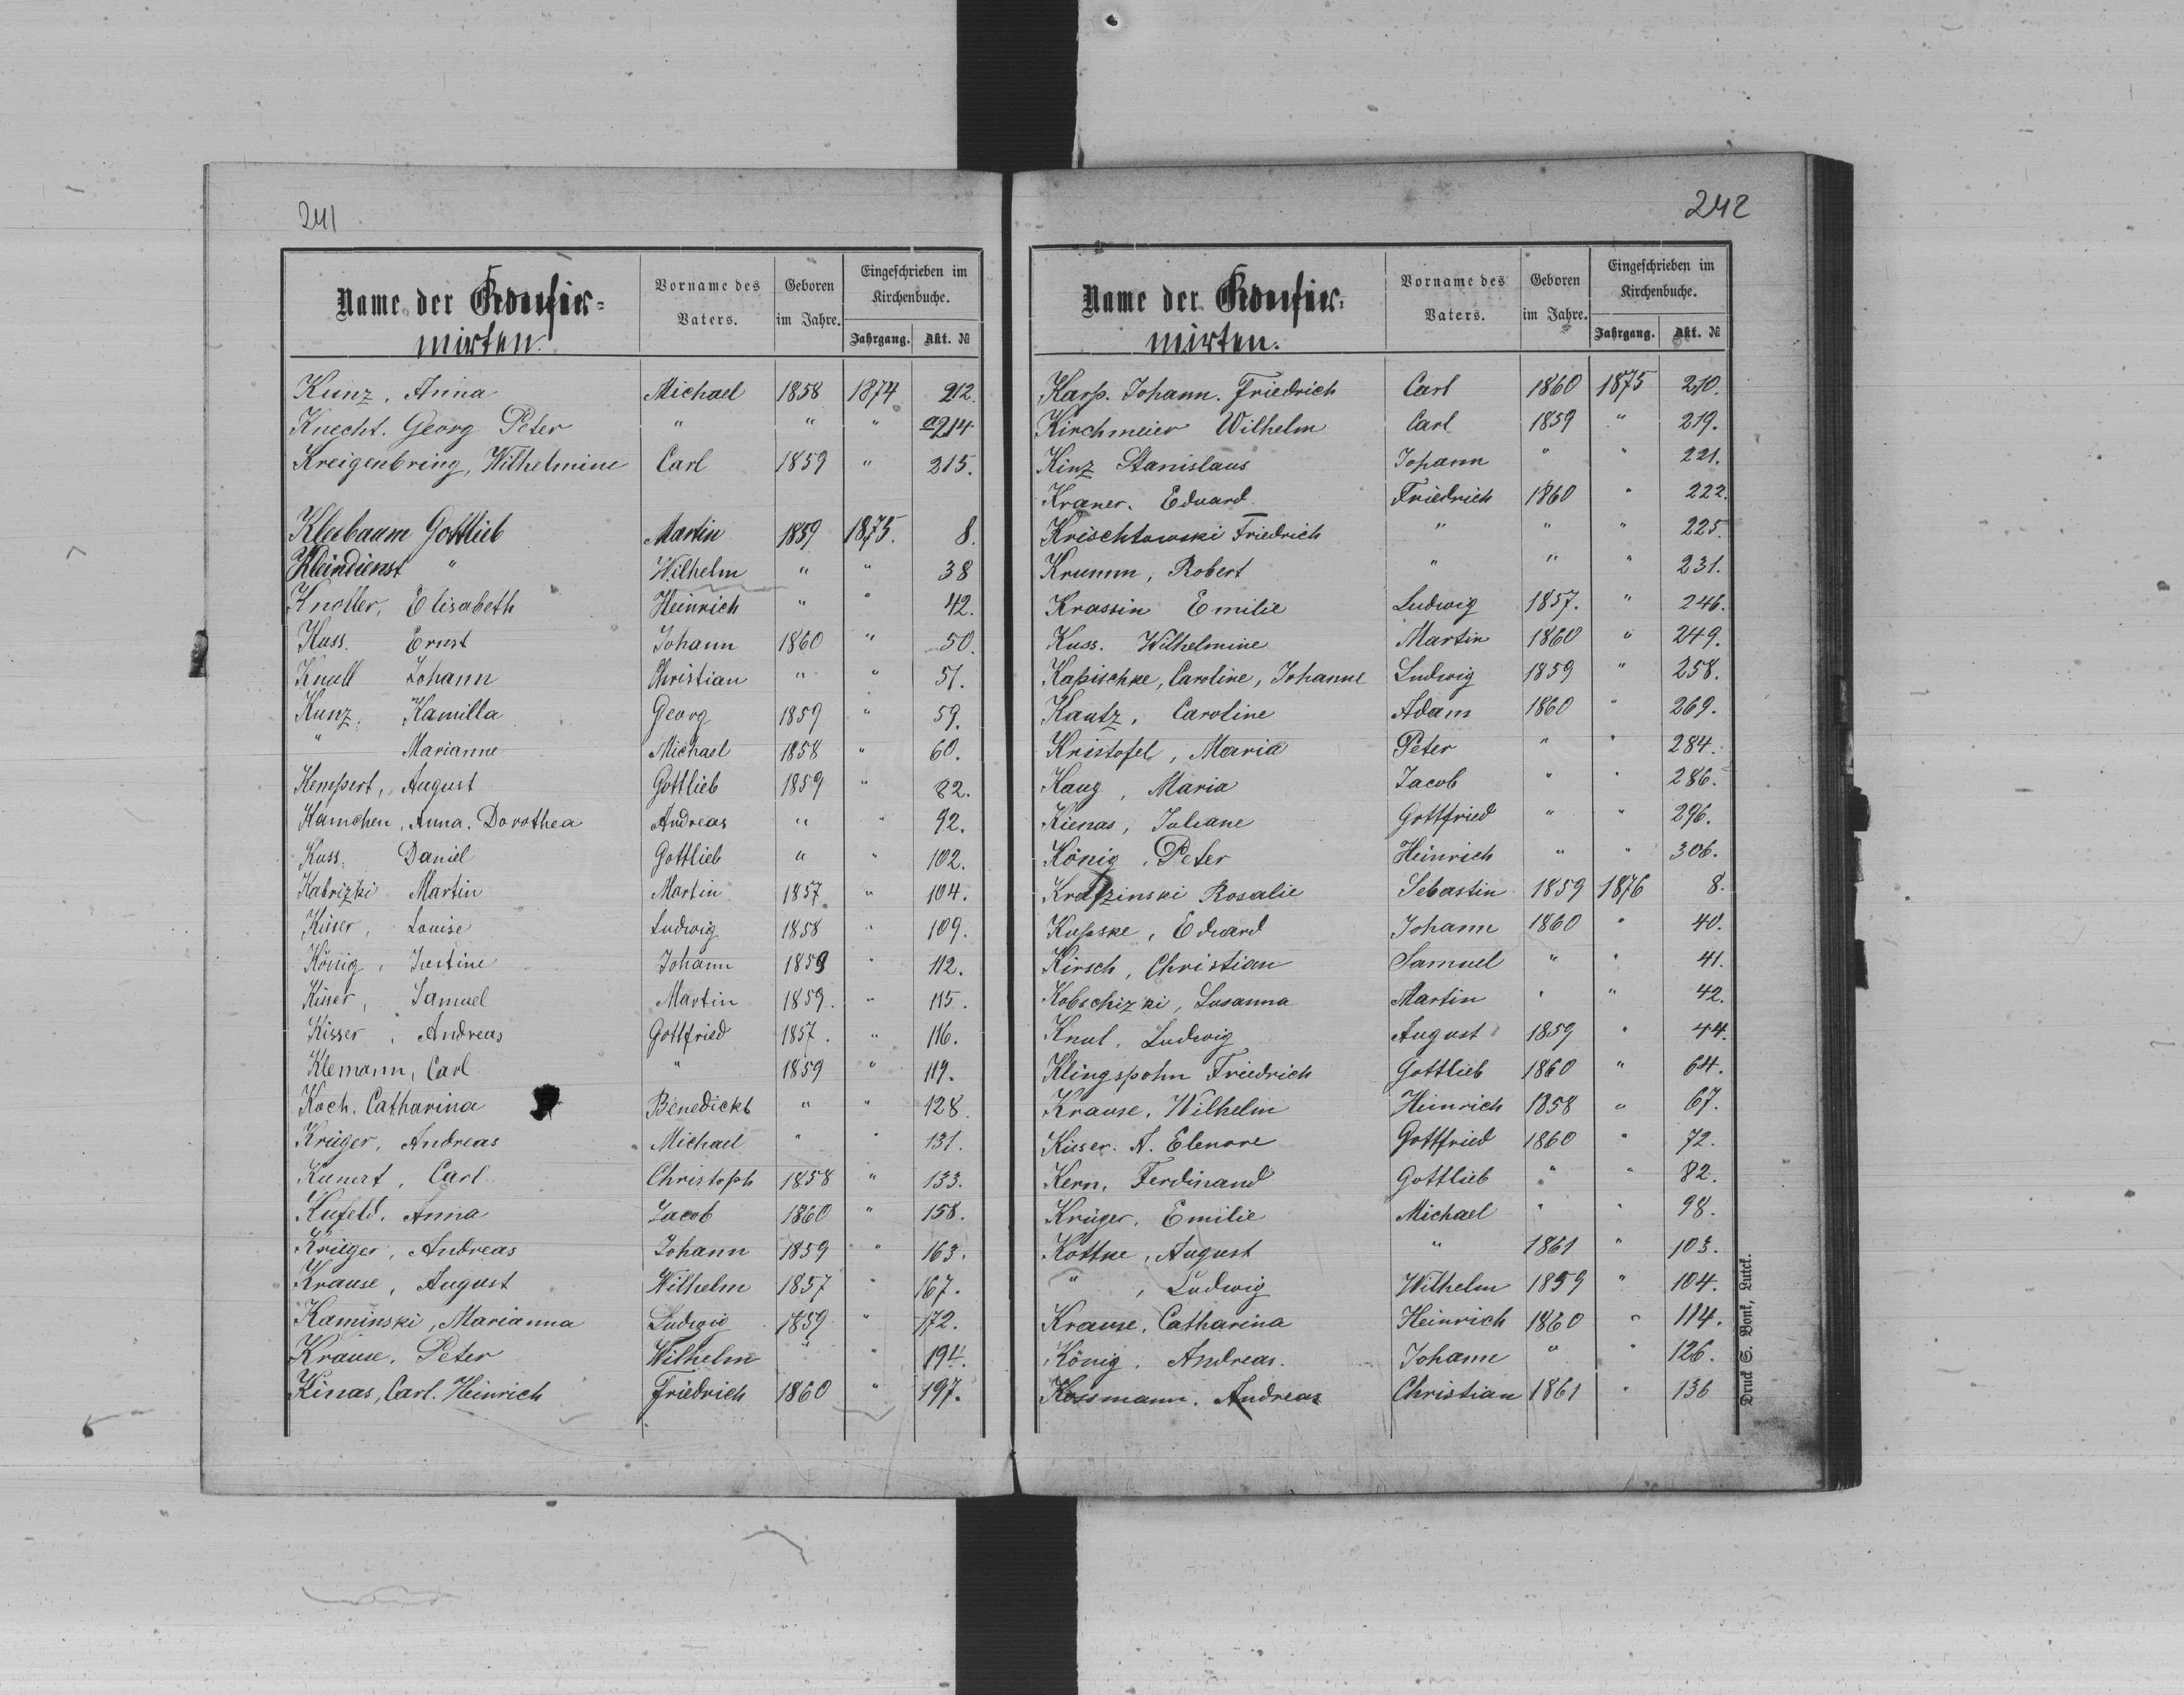 241
Name der Confir=
mirten.
Vorname des Vaters.
Geboren im Jahre.
Eingeschrieben im Kirchenbuche.
Jahrgang. Akt. №
Kunz, Anna Michael 1858 1874 212.
Knecht. Georg Peter " " " a214
Kreigenbring, Wilhelmine Carl 1859 " 215.
Kleebaum Gottlieb Martin 1859 1875. 8.
Kleindienst " Wilhelm " " 38
Knoller, Elisabeth Heinrich " " 42.
Kuss. Ernst Johann 1860 " 50.
Knull Johann Christian " " 51.
Kunz. Kamilla Georg 1859 " 59.
" Marianne Michael 1858 " 60.
Kempert, August Gottlieb 1859 " 82.
Kamchen, Anna. Dorothea Andreas " " 92.
Kuss. Daniel Gottlieb " " 102.
Kabrizki Martin Martin 1857 " 104.
Kisser, Louise Ludwig 1858 " 109.
König, Justine Johann 1859 " 112.
Kisser, Samuel Martin 1859. " 115.
Kisser, Andreas Gottfried 1857. " 116.
Klemann, Carl " 1859 " 119.
Koch. Catharina Benedickt " " 128.
Krüger, Andreas Michael " " 131.
Kunert, Carl Christoph 1858 " 133.
Kufeld. Anna Jacob 1860 " 158.
Krieger, Andreas Johann 1859 " 163.
Krause, August Wilhelm 1857 " 167.
Kaminski, Marianna Ludwig 1859 " 172.
Krause. Peter Wilhelm " " 194.
Kinas, Carl. Heinrich Friedrich 1860 " 197.
242
Name der Confir=
mirten.
Vorname des Vaters.
Geboren im Jahre.
Eingeschrieben im Kirchenbuche.
Jahrgang. Akt. №
Karp. Johann. Friedrich Carl 1860 1875 210.
Kirchmeier Wilhelm Carl 1859 " 219.
Kinz Stanislaus Johann " " 221.
Kraner. Eduard Friedrich 1860 " 222.
Krischtowski Friedrich " " " 225.
Krumm, Robert " " " 231.
Krassin Emilie Ludwig 1857. " 246.
Kuss. Wilhelmine Martin 1860 " 249.
Kapischke, Caroline, Johanne Ludwig 1859 " 258.
Kautz, Caroline Adam 1860 " 269.
Kristofel, Maria Peter " " 284.
Kaug, Maria Jacob " " 286.
Kienas, Juliane Gottfried " " 296.
König, Peter Heinrich " " 306.
Kratzinski Rosalie Sebastin 1859 1876 8.
Kupske, Eduard Johann 1860 " 40.
Kirsch, Christian Samuel " " 41.
Kobschizki, Susanna Martin " " 42.
Knul, Ludwig August 1859 " 44.
Klingspohn Friedrich Gottlieb 1860 " 64.
Krause, Wilhelm Heinrich 1858 " 67.
Kieser. A. Elenore Gottfried 1860 " 72.
Kern, Ferdinand Gottlieb " " 82.
Krüger, Emilie Michael " " 98.
Kottke, August " 1861 " 103.
" , Ludwig Wilhelm 1859 " 104.
Krause, Catharina Heinrich 1860 " 114.
König. Andreas. Johann " " 126.
Kossmann. Andreas Christian 1861 " 136
Druck S. Bonk, Lutck.